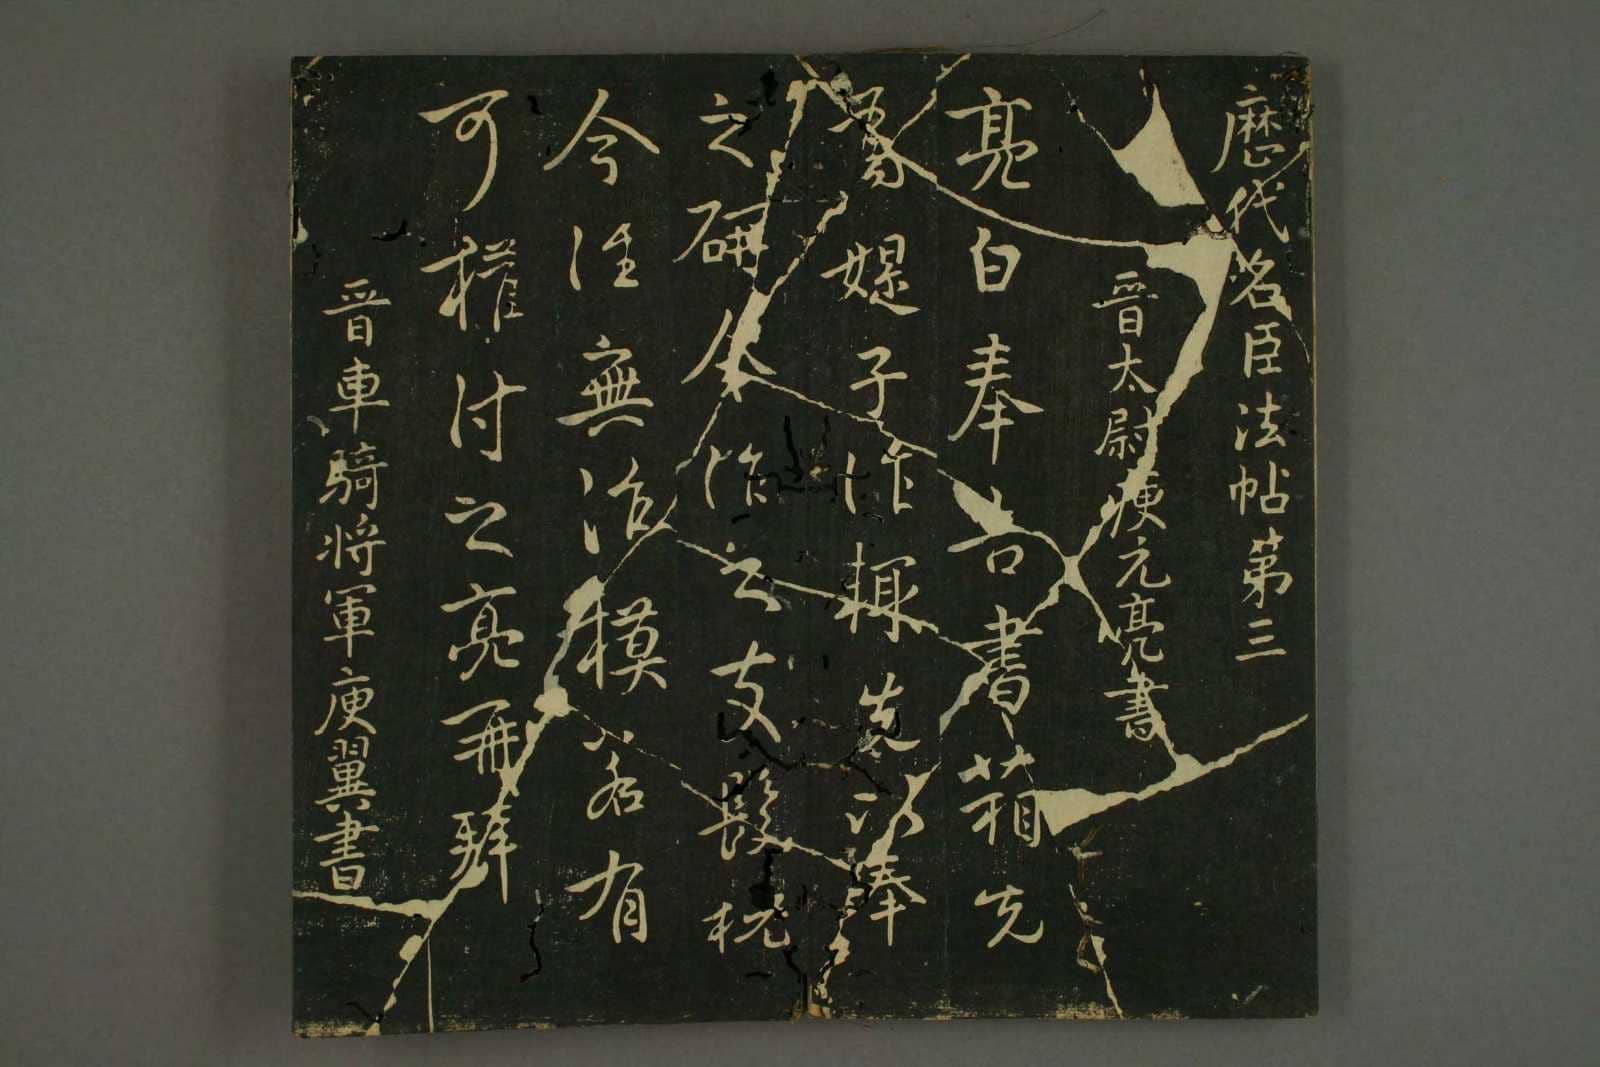 歷代名臣法帖第三
晉太尉庾元亮書
亮白奉告書箱先
媞子作輒以奉
之研作之支
今往無治模若有
可權付之亮再拜
晉車騎將軍庾翼書